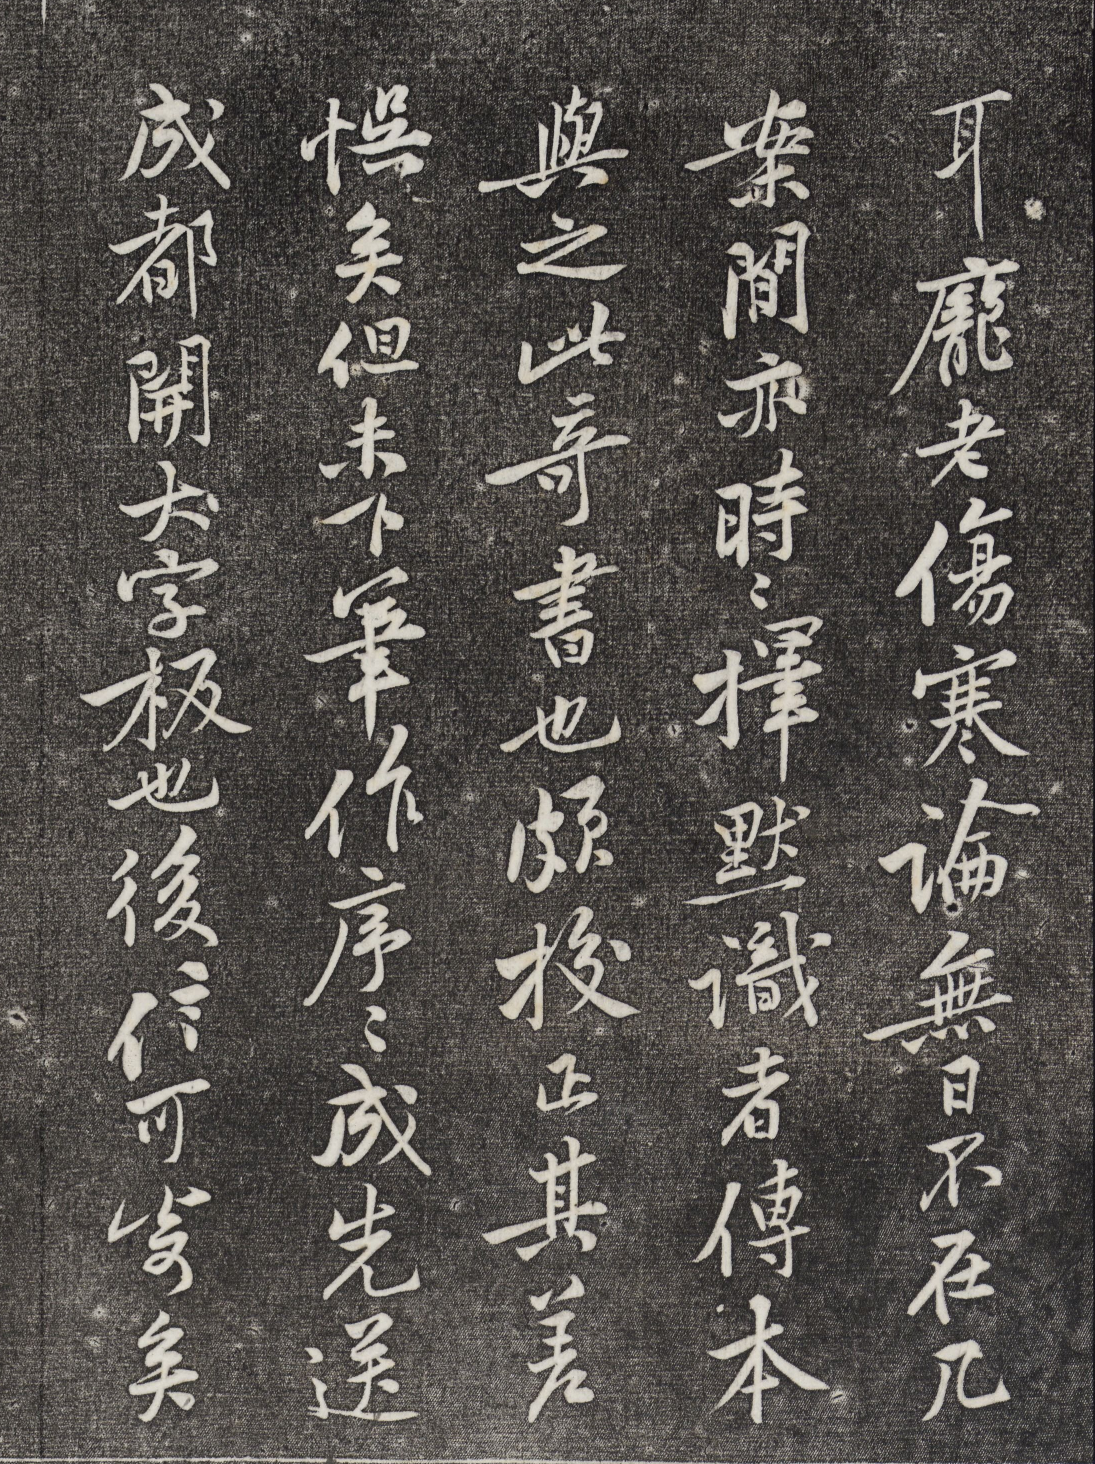 耳龐老傷寒論無日不在几
案閒亦時〻擇默識者傳本
與之此奇書也頗挍正其差
悮矣但未下筆作序〻成先送
成都開大字板也後信可寄矣